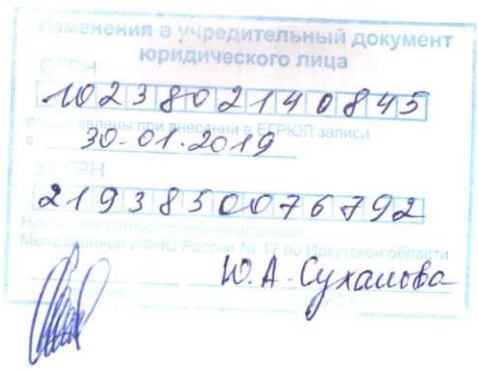 Изменения в учредительный документ
юридического лица
ОГРН
1023802140845
представлены при внесении в ЕГРЮЛ записи
от 30.01.2019
за ГРН
2193850076792
Межрайонной ИФНС России № 17 по Иркутской области
Ю.А. Суханова